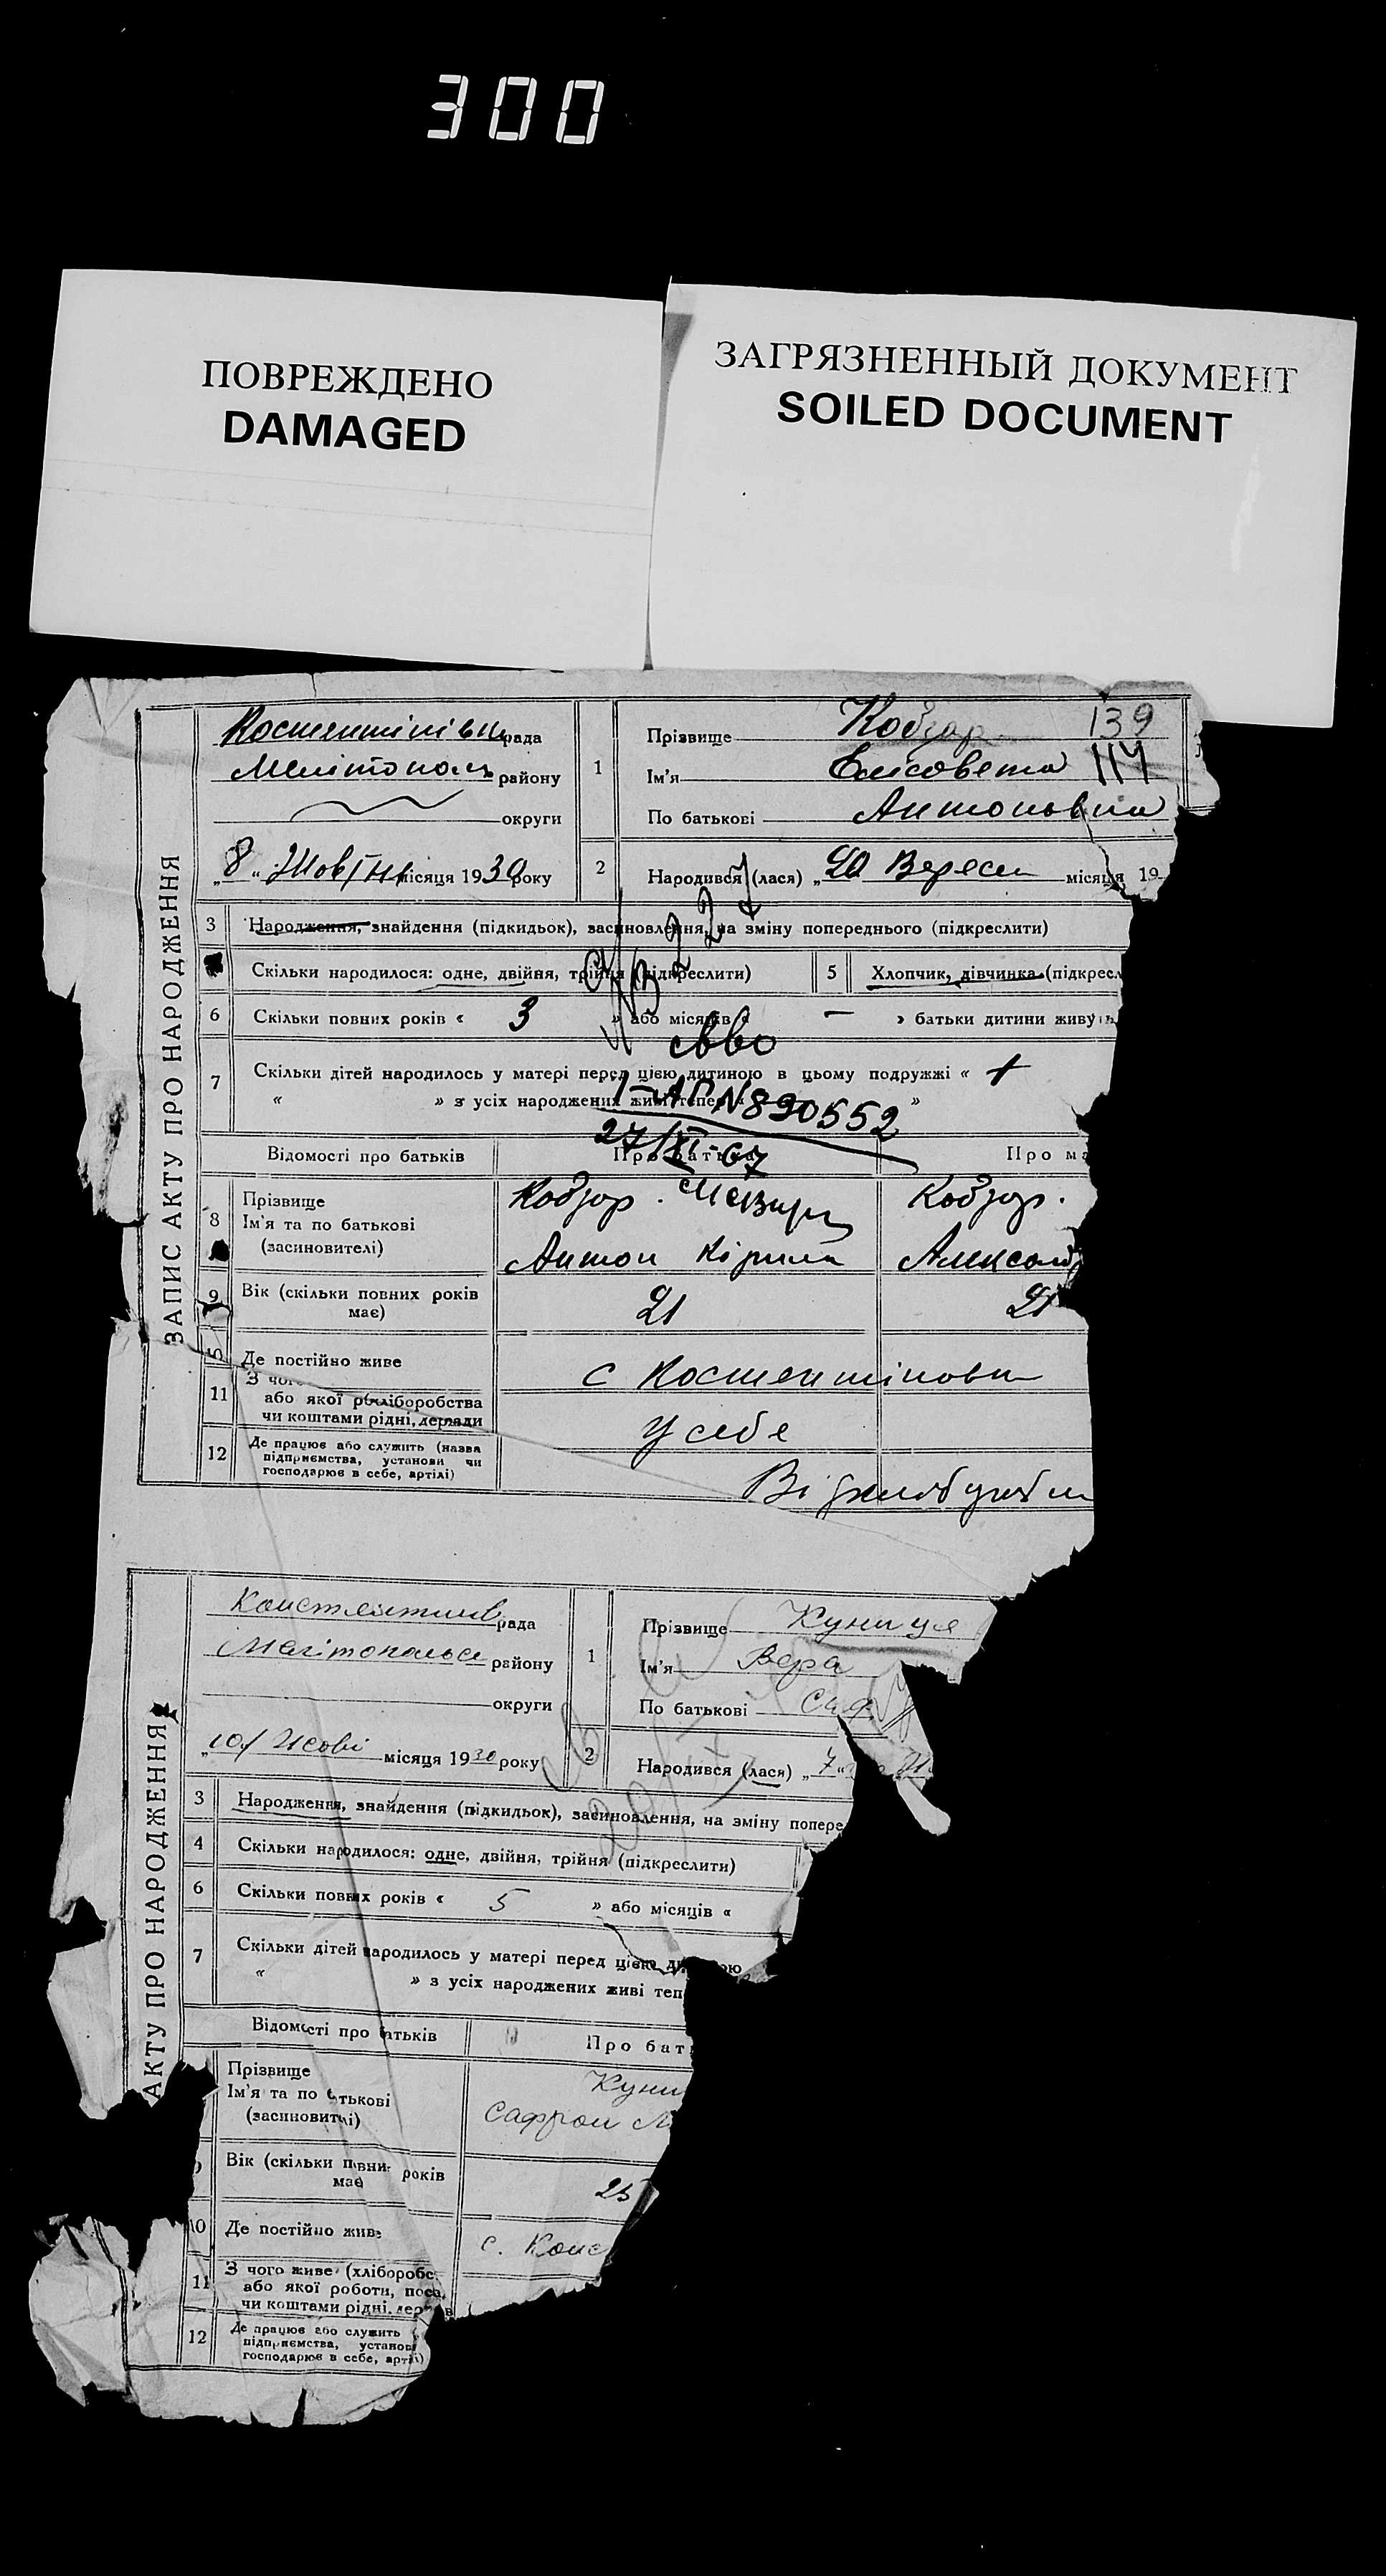 300
ПОВРЕЖДЕНО
DAMAGED
ЗАГРЯЗНЕННЫЙ ДОКУМЕНТ
SOILED DOCUMENT
ЗАПИС АКТУ ПРО НАРОДЖЕННЯ
рада
району
округи
„8“ місяця 1930 року
1
Прізвище Кобзар 139
Ім'я Єлісовета
По батькові Антоновна
2
Народився (лася) „20 Вересн місяця 19
3 Народження, знайдення (підкидьок), засиновлення, на зміну попереднього (підкреслити)
Скільки народилося: одне, двійня, трійня (підкреслити) 5 Хлопчик, дівчинка (підкресл
6 Скільки повних років « 3 » або місяців « — » батьки дитини живуть
7 Скільки дітей народилось у матері перед цією дитиною в цьому подружжі «
« » з усіх народжених живі тепер « »
І-АП №890552
27/XI-67
Відомості про батьків Про батька Про ма
8 Прізвище
Ім'я та по батькові
(засиновителі)
Кобзар Кобзар.
Антон Кірил Александ
9 Вік (скільки повних років
має)
21 21
10 Де постійно живе с Костентіновк
11 З чого
або якої хліборобства
чи коштами рідні, держави
у себе
12 Де працює або служить (назва
підприємства, установи чи
господарює в себе, артілі)
АКТУ ПРО НАРОДЖЕННЯ
Константинів рада
Мелітопольс району
округи
„10/ місяця 1930 року
1
Прізвище Куниця
Ім'я Вера
По батькові Саф
2
Народився (лася) „7“
3 Народження, знайдення (підкидьок), засиновлення, на зміну попере
4 Скільки народилося: одне, двійня, трійня (підкреслити)
6 Скільки повних років « 5 » або місяців «
7 Скільки дітей народилось у матері перед цією
« » з усіх народжених живі теп
Відомості про батьків Про бать
Прізвище
Ім'я та по батькові
(засиновителі)
Куни
Сафрон
Вік (скільки повних років
має)
25
10 Де постійно живе с. Конс
11 З чого живе (хліборобс
або якої роботи, поса
чи коштами рідні, держав
12 Де працює або служить
підприємства, установи
господарює в себе, артілі)